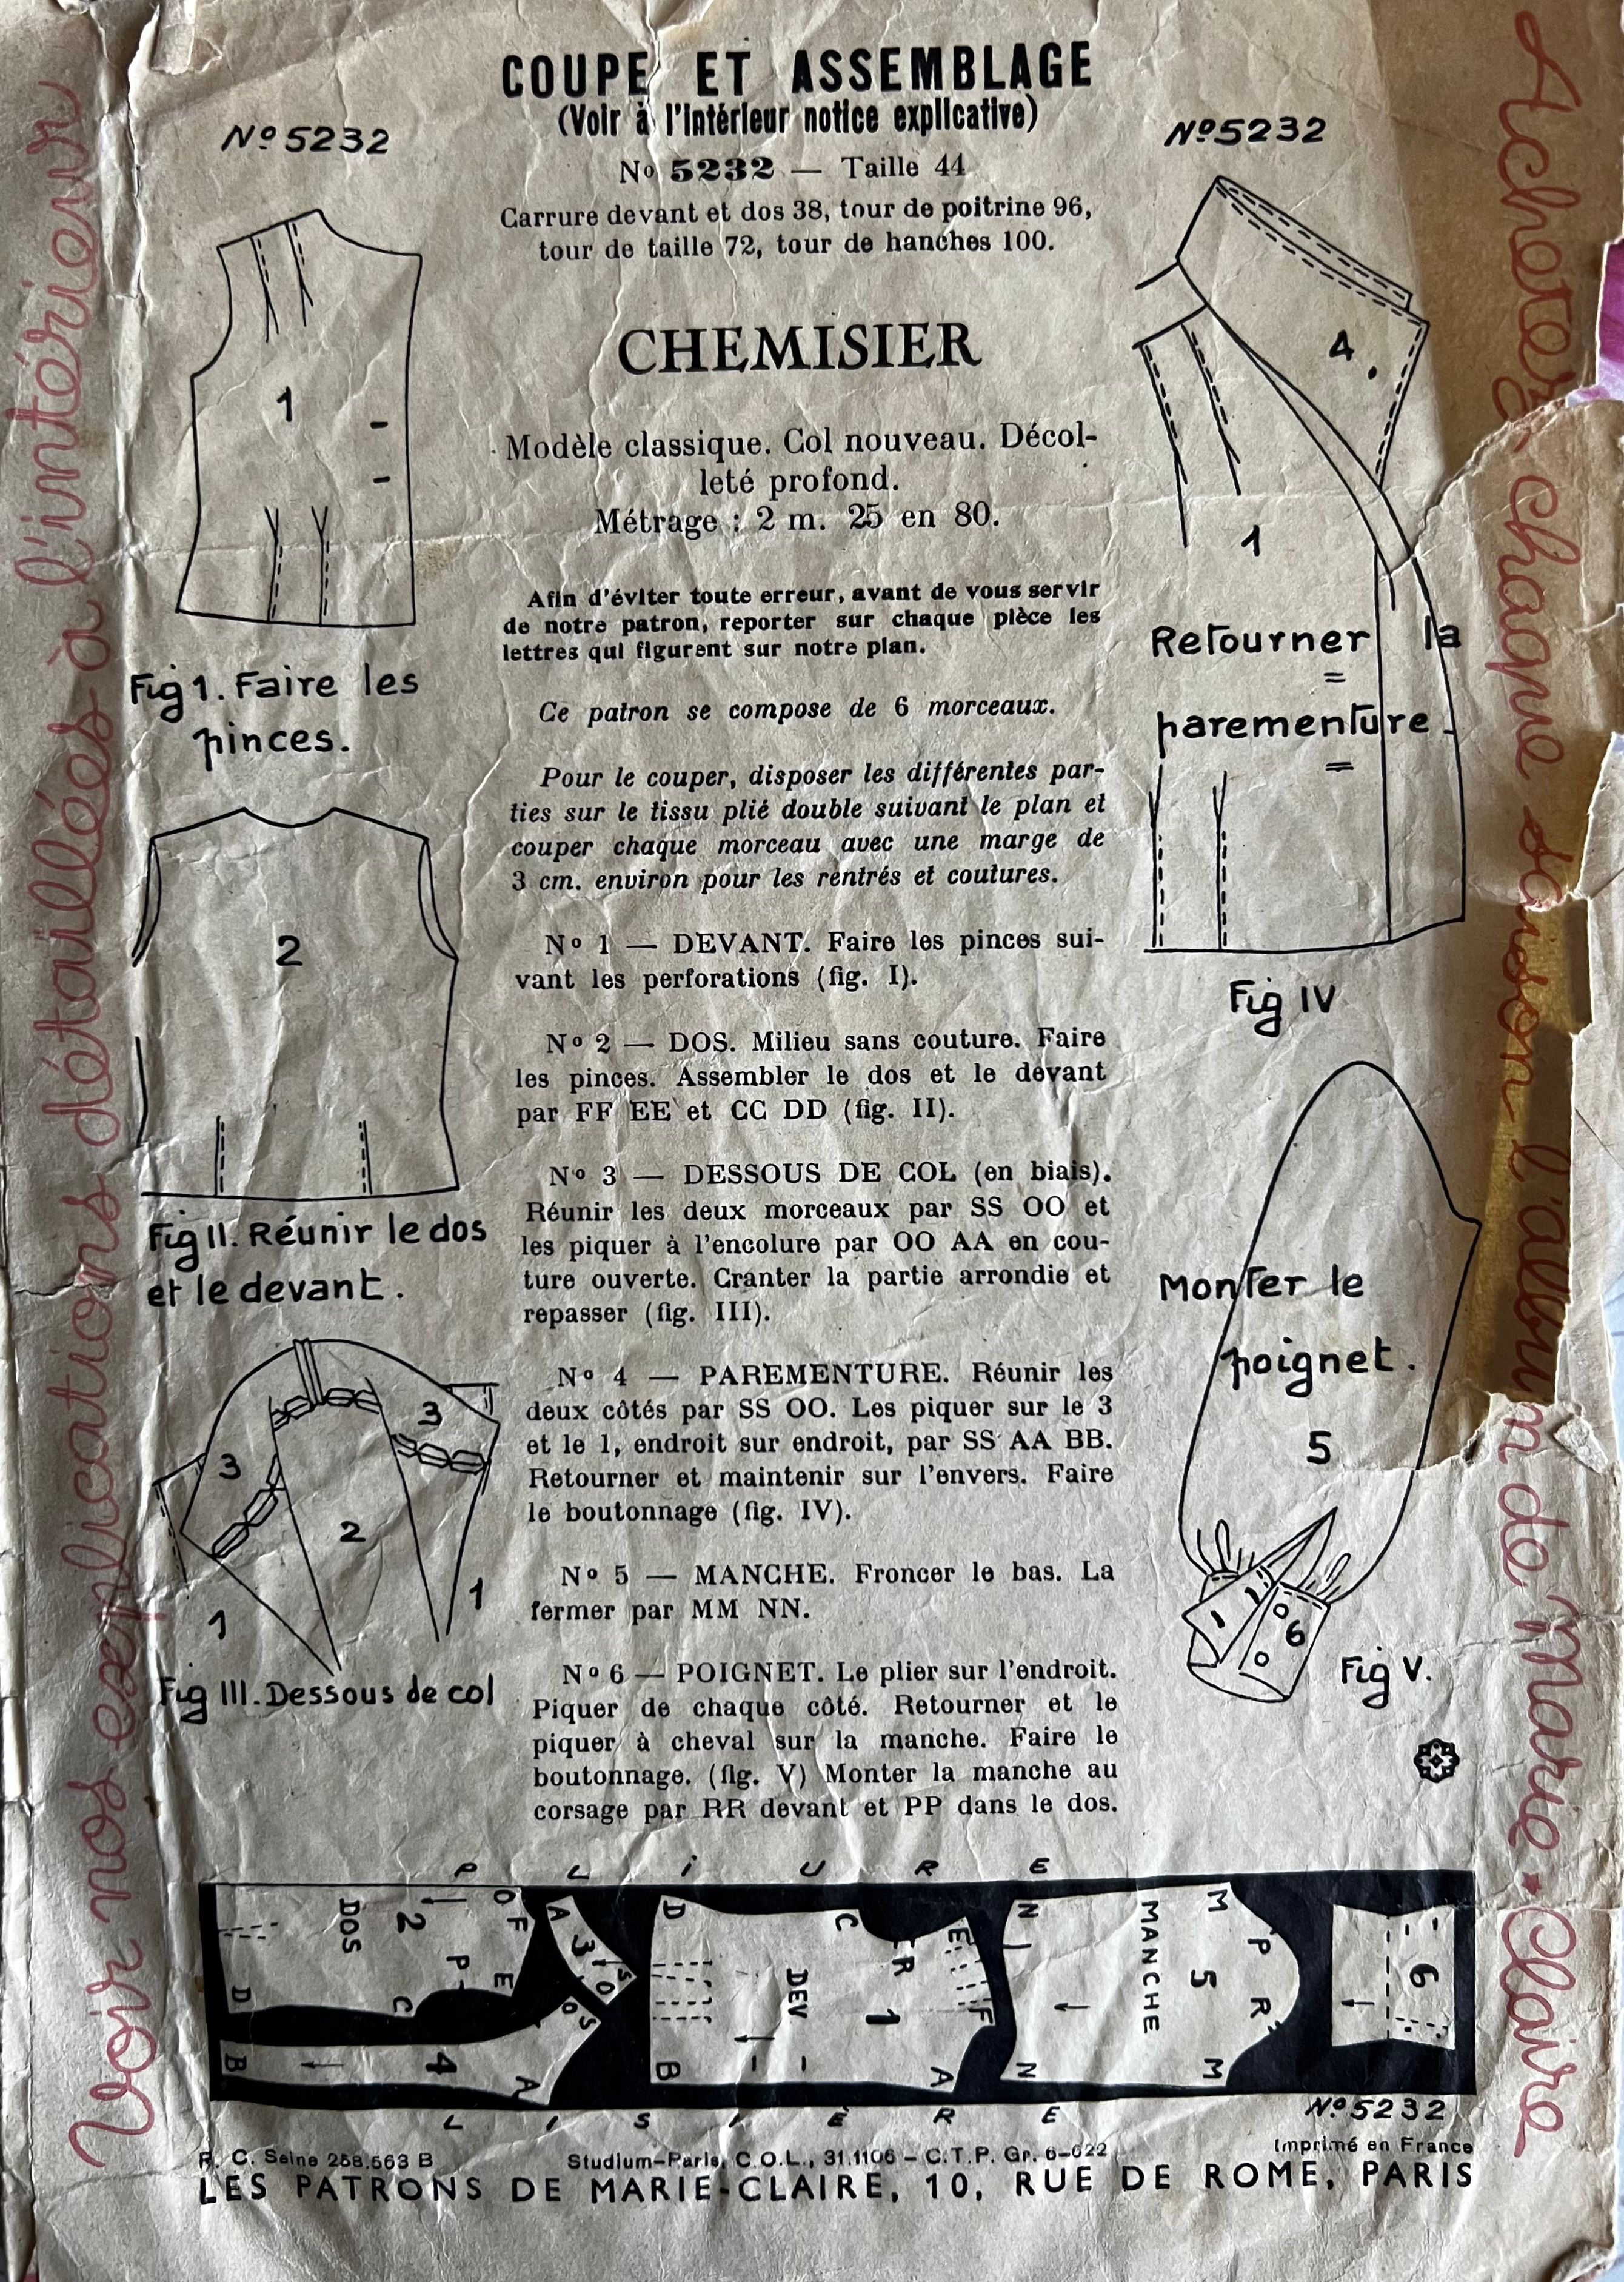 COUPE ET ASSEMBLAGE
(Voir à l'intérieur notice explicative)
Nº 5232
Nº 5232
Nº 5232 — Taille 44
Carrure devant et dos 38, tour de poitrine 96,
tour de taille 72, tour de hanches 100.
CHEMISIER
Modèle classique. Col nouveau. Décol-
leté profond.
Métrage : 2 m. 25 en 80.
Afin d'éviter toute erreur, avant de vous servir
de notre patron, reporter sur chaque pièce les
lettres qui figurent sur notre plan.
Ce patron se compose de 6 morceaux.
Pour le couper, disposer les différentes par-
ties sur le tissu plié double suivant le plan et
couper chaque morceau avec une marge de
3 cm. environ pour les rentrés et coutures.
Nº 1 — DEVANT. Faire les pinces sui-
vant les perforations (fig. I).
Nº 2 — DOS. Milieu sans couture. Faire
les pinces. Assembler le dos et le devant
par FF EE et CC DD (fig. II).
Nº 3 — DESSOUS DE COL (en biais).
Réunir les deux morceaux par SS OO et
les piquer à l'encolure par OO AA en cou-
ture ouverte. Cranter la partie arrondie et
repasser (fig. III).
Nº 4 — PAREMENTURE. Réunir les
deux côtés par SS OO. Les piquer sur le 3
et le 1, endroit sur endroit, par SS AA BB.
Retourner et maintenir sur l'envers. Faire
le boutonnage (fig. IV).
Nº 5 — MANCHE. Froncer le bas. La
fermer par MM NN.
Nº 6 — POIGNET. Le plier sur l'endroit.
Piquer de chaque côté. Retourner et le
piquer à cheval sur la manche. Faire le
boutonnage. (fig. V) Monter la manche au
corsage par RR devant et PP dans le dos.
1
Fig 1. Faire les
pinces.
2
Fig II. Réunir le dos
et le devant.
3
3
2
1
1
Fig III. Dessous de col
4.
1
Retourner la
parementure.
Fig IV
Monter le
poignet.
5
6
Fig V.
Voir nos explications détaillées à l'intérieur
Achetez chaque saison l'album de Marie * Claire
PLIURE
DOS
2
O
F
P
E
C
D
B
4
A
A
3
S
O
O
S
D
C
E
R
DEV
1
F
B
A
N
M
MANCHE
5
P
R
N
M
6
LISIÈRE
Nº 5232
R. C. Seine 258.563 B
Studium-Paris, C.O.L., 31.1106 – C.T.P. Gr. 6-622
Imprimé en France
LES PATRONS DE MARIE-CLAIRE, 10, RUE DE ROME, PARIS